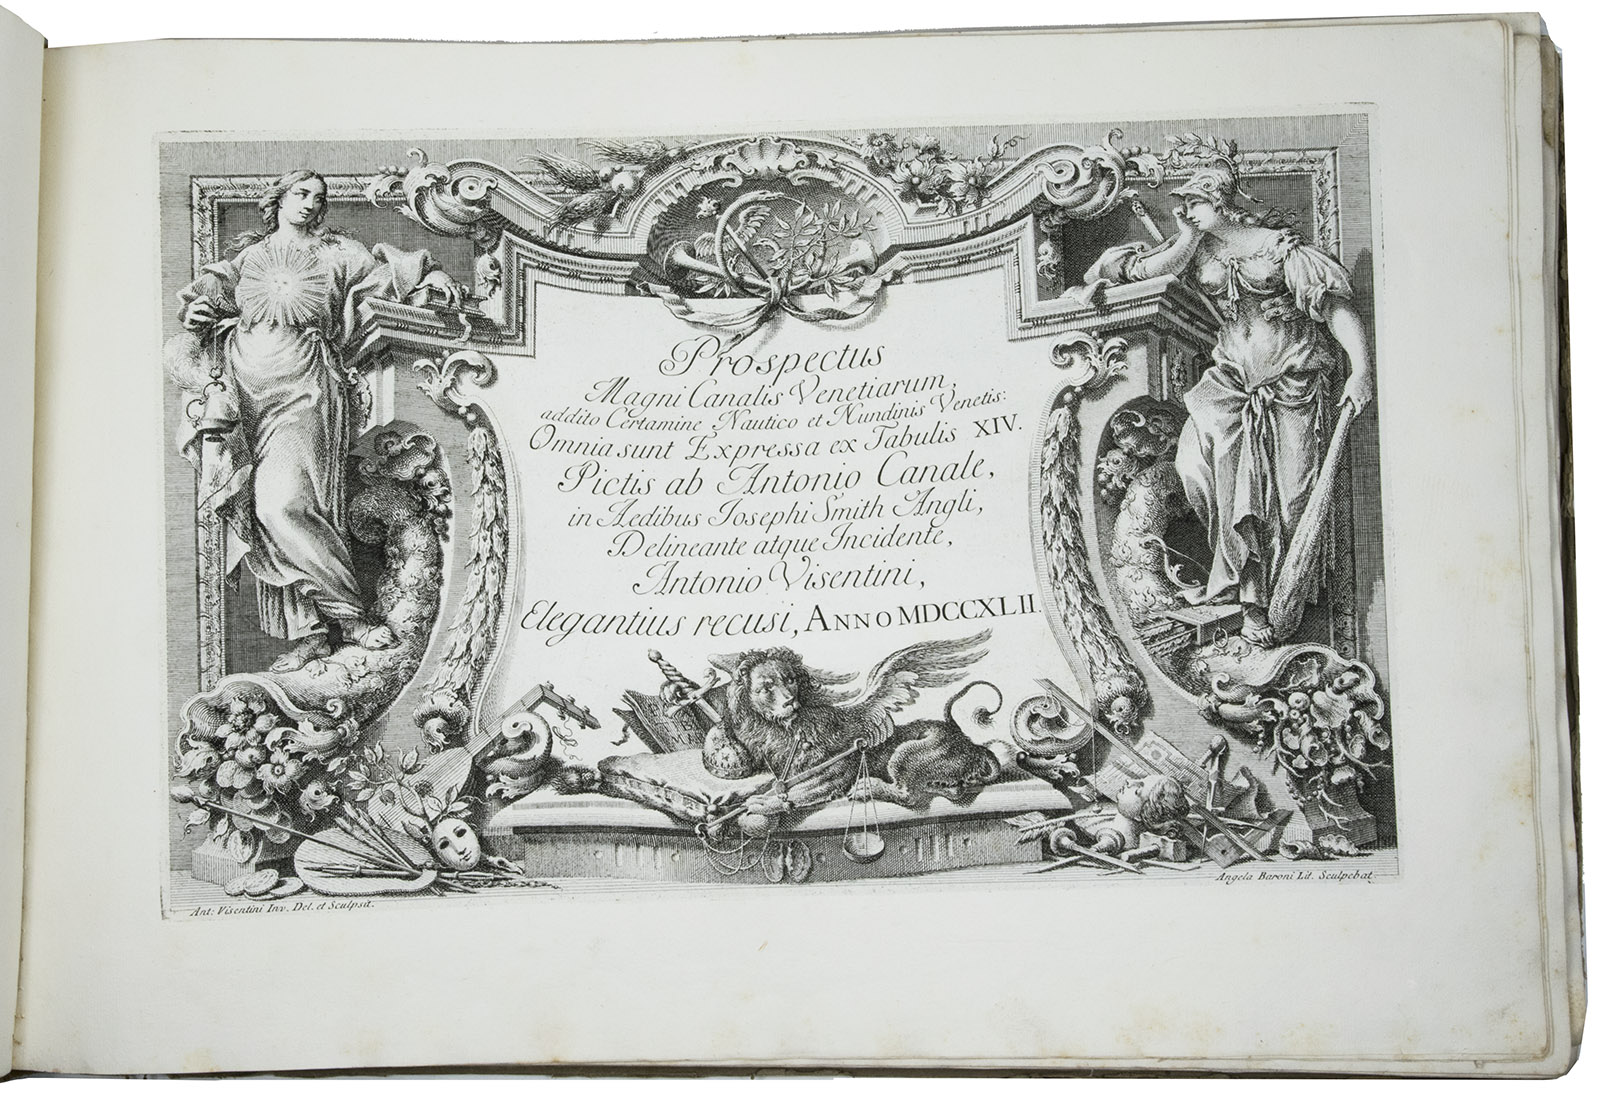 Prospectus
Magni Canalis Venetiarum,
addito Certamine Nautico et Nundinis Venetis:
Omnia sunt Expressa ex Tabulis XIV.
Pictis ab Antonio Canale,
in Aedibus Josephi Smith Angli,
Delineante atque Incidente,
Antonio Visentini,
Elegantius recusi, ANNO MDCCXLII.
Ant: Visentini Inv. Del. et Sculpsit.
Angela Baroni Lit. Sculpebat.